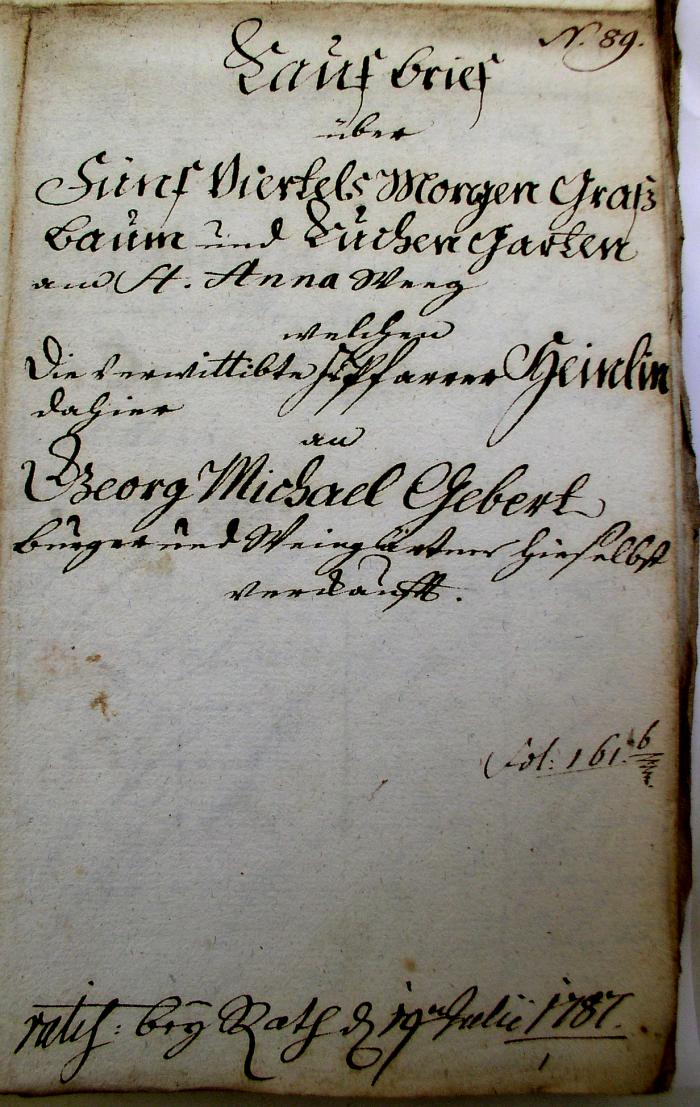 N. 89.
Kauf brief
über
Fünf Viertels Morgen Graß
baum und Kuchen Garten
am St. Anna Weeg
welchen
Die verwittibte Pfarrer Heinlin
dahier
an
Georg Michael Gebert
burger und Weingärtner hieselbst
verkaufft.
Fol: 161. b
ratif: bey Rath d 19ten Julii 1787.